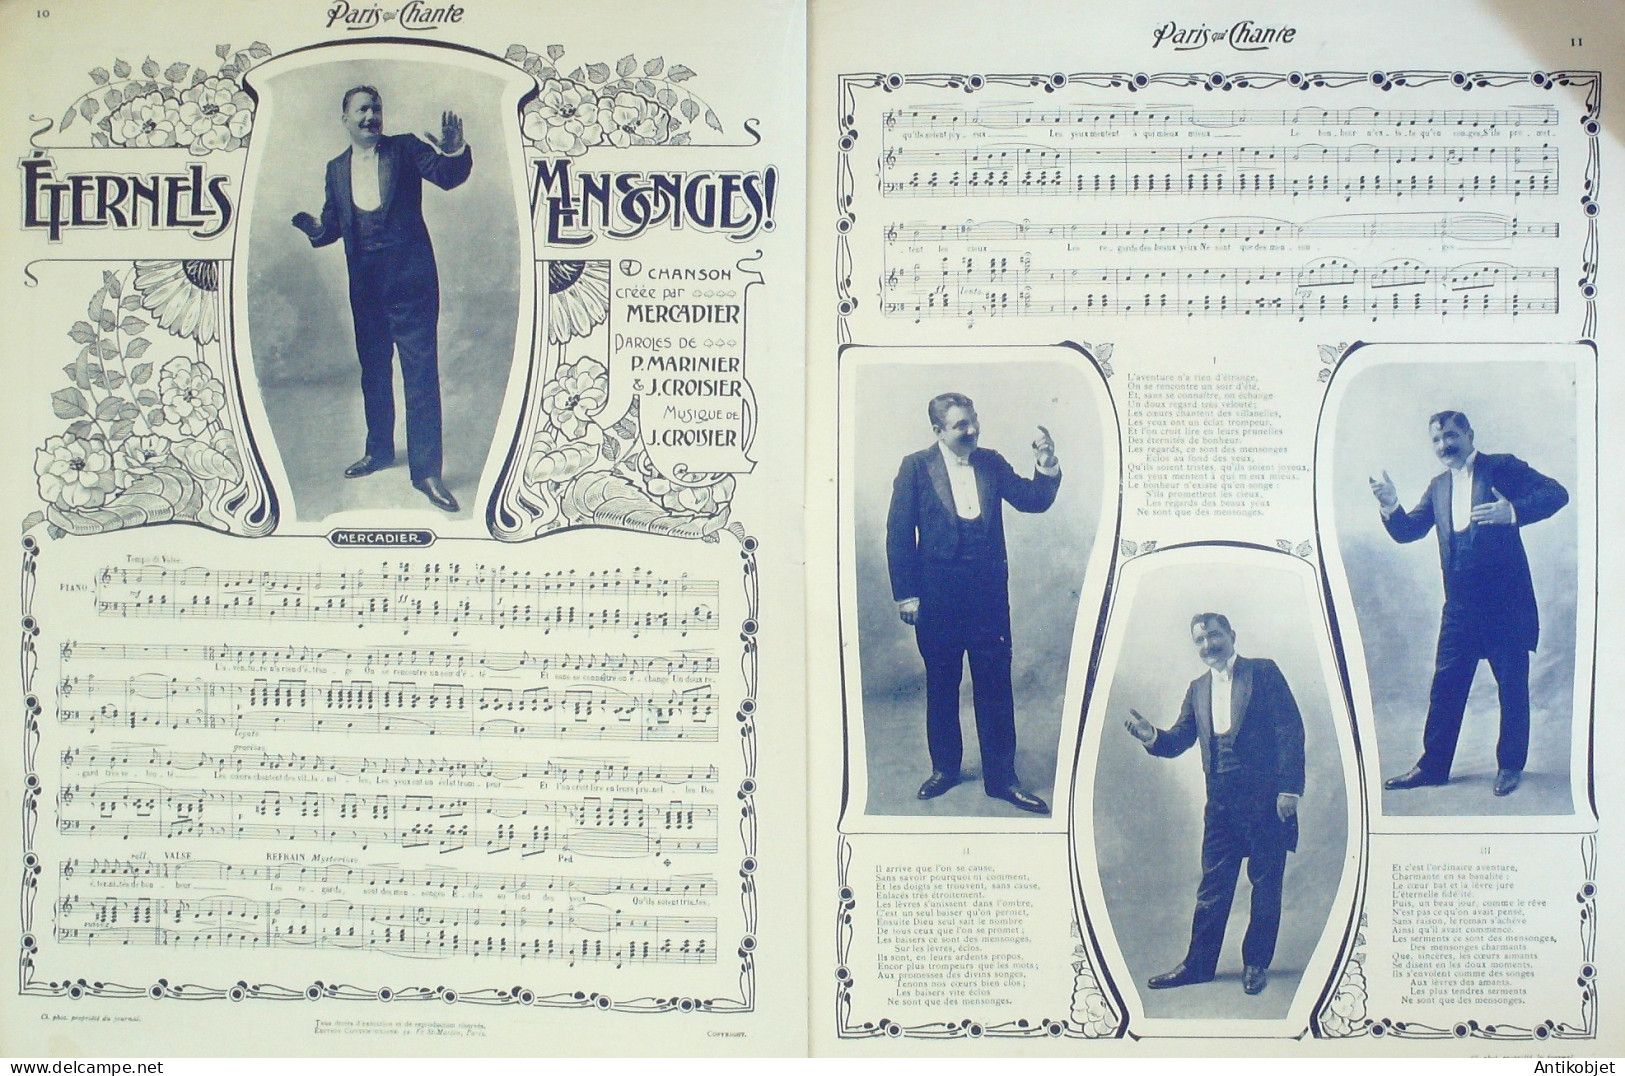 10
Paris qui Chante
ÉTERNELS MENSONGES!
CHANSON
créée par
MERCADIER
PAROLES DE
P. MARINIER
& J. CROISIER
MUSIQUE DE
J. CROISIER
MERCADIER
Tempo di Valse
PIANO
mf ff ff
L'a_ven_tu_re n'a rien d'é_tran_ge On se rencontre un soir d'é_té Et sans se connaître on é_change Un doux re_
legato
gracioso
_gard très ve_lou_té Les cœurs chantent des vil_la_nel_les, Les yeux ont un éclat trom_peur Et l'on croit lire en leurs pru_nel_les Des
Ped
rall. VALSE REFRAIN Mysterioso
é_ter_ni_tés de bon_heur Les re_gards, sont des men_songes E_clos au fond des yeux Qu'ils soient tris_tes,
Cl. phot. propriété du journal.
Tous droits d'exécution et de reproduction réservés.
COPYRIGHT.
Paris qui Chante
11
qu'ils soient joy_eux Les yeux mentent à qui mieux mieux Le bon_heur n'ex_is_te qu'en songes, S'ils pro_met_
_tent les cieux Les re_gards des beaux yeux Ne sont que des men_son_ges
I
L'aventure n'a rien d'étrange,
On se rencontre un soir d'été,
Et, sans se connaître, on échange
Un doux regard très velouté;
Les cœurs chantent des villanelles,
Les yeux ont un éclat trompeur,
Et l'on croit lire en leurs prunelles
Des éternités de bonheur.
Les regards, ce sont des mensonges
Eclos au fond des yeux,
Qu'ils soient tristes, qu'ils soient joyeux,
Les yeux mentent à qui mieux mieux.
Le bonheur n'existe qu'en songe :
S'ils promettent les cieux,
Les regards des beaux yeux
Ne sont que des mensonges.
II
Il arrive que l'on se cause,
Sans savoir pourquoi ni comment,
Et les doigts se trouvent, sans cause,
Enlacés très étroitement.
Les lèvres s'unissent dans l'ombre,
C'est un seul baiser qu'on permet,
Ensuite Dieu seul sait le nombre
De tous ceux que l'on se promet ;
Les baisers ce sont des mensonges,
Sur les lèvres, éclos.
Ils sont, en leurs ardents propos,
Encor plus trompeurs que les mots;
Aux promesses des divins songes,
Tenons nos cœurs bien clos;
Les baisers vite éclos
Ne sont que des mensonges.
III
Et c'est l'ordinaire aventure,
Charmante en sa banalité :
Le cœur bat et la lèvre jure
L'éternelle fidélité.
Puis, un beau jour, comme le rêve
N'est pas ce qu'on avait pensé,
Sans raison, le roman s'achève
Ainsi qu'il avait commencé.
Les serments ce sont des mensonges,
Des mensonges charmants
Que, sincères, les cœurs aimants
Se disent en les doux moments.
Ils s'envolent comme des songes
Aux lèvres des amants.
Les plus tendres serments
Ne sont que des mensonges.
Antikobjet